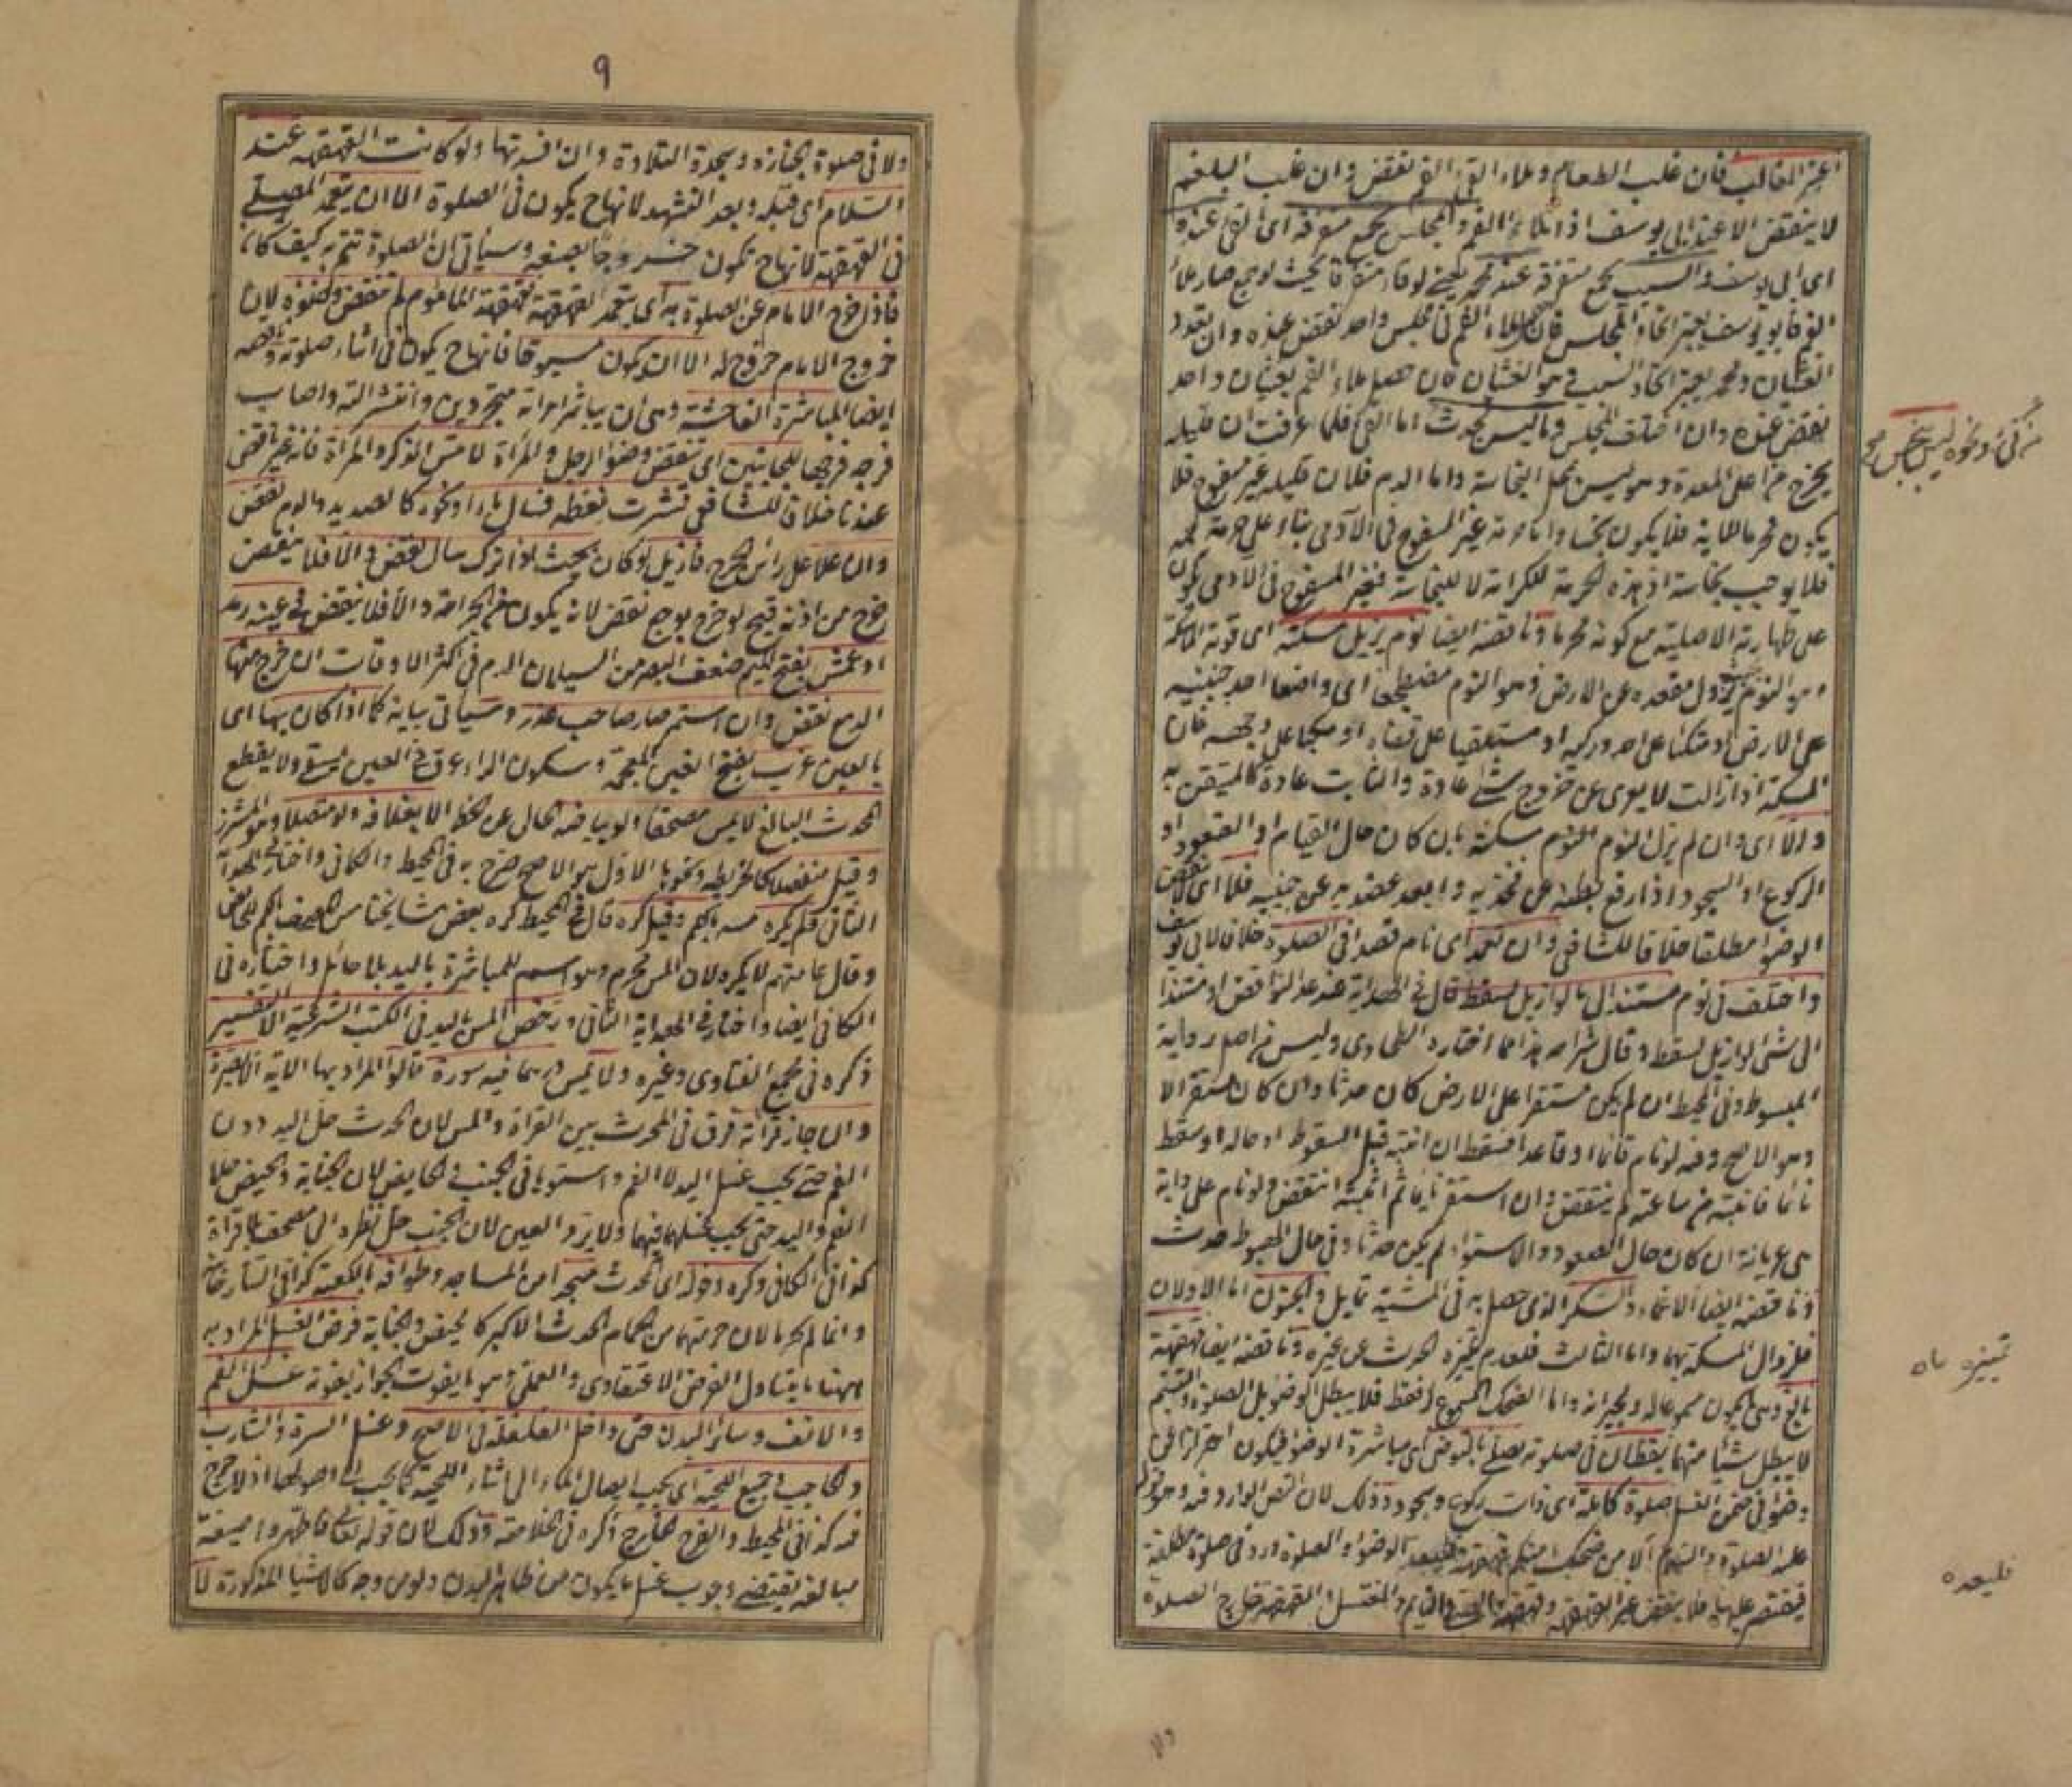 اعتبر الغالب فان غلب الطعام وملاء الفم نقض وان غلب البلغم
لا ينقض الا عند ابى يوسف اذا ملاء الفم والمجلس يجمع متفرقه اى القئ عنده
اى ابى يوسف والسبب يجمع متفرقه عند محمد يعنى لو قاء متفرقا بحيث لو جمع صار ملأ
الفم فابو يوسف يعتبر اتحاد المجلس فان حصل ملاء الفم فى مجلس واحد نقض عنده وان تعدد
الغثيان ومحمد يعتبر اتحاد السبب وهو الغثيان فان حصل ملاء الفم بغثيان واحد
نقض عنده وان اختلف المجلس وما ليس بحدث اما القئ فلما عرفت ان قليله
من قئ ونحوه ليس بنجس صح
يخرج من اعلى المعدة وهو ليس محل النجاسة واما الدم فلان قليله غير مسفوح فلا
يكون محرما بالآية فلا يكون نجسا واما حرمة غير المسفوح فى الآدمى بناء على حرمة لحمه
فلا يوجب نجاسته اذ هذه الحرمة للكرامة لا للنجاسة فغير المسفوح فى الادمى يكون
على طهارته الاصلية مع كونه محرما وناقضه ايضا نوم يزيل مسكته اى قوته الماسكة
وهو النوم يزول مقعده عن الارض وهو النوم مضطجعا اى واضعا احد جنبيه
على الارض او متكئا على احد وركيه او مستلقيا على قفاه او منكبا على وجهه فان
المسكة اذا زالت لا يعرى عن خروج شئ عادة والثابت عادة كالمتيقن به
والا اى وان لم يزل النوم مسكته بان كان حال القيام او القعود او
الركوع او السجود اذا رفع بطنه عن فخذيه وابعد عضديه عن جنبيه فلا اى لا ينقض
الوضوء مطلقا خلافا للشافعى وان تعمد اى نام قصدا فى الصلوة خلافا لابى يوسف
واختلف فى نوم مستند الى ما لو ازيل لسقط قال فى الهداية عند عد النواقض او مستندا
الى شئ لو ازيل لسقط وقال شراحه هذا ما اختاره الطحاوى وليس من اصل رواية
المبسوط وفى المحيط ان لم يكن مستقرا على الارض كان حدثا وان كان مستقرا لا
وهو الاصح وفيه لو نام قائما او قاعدا فسقط ان انتبه قبل السقوط او حاله او سقط
نائما فانتبه من ساعته لم ينتقض وان استقر نائما ثم انتبه انتقض ولو نام على دابة
هى عريانة ان كان حال الصعود والاستواء لم يكن حدثا وفى حال الهبوط حدث
وناقضه ايضا الاغماء والسكر الذى حصل به فى المشية تمايل والجنون اما الاولان
فلزوال المسكة بهما واما الثالث فلعدم تمييزه الحدث عن غيره وناقضه ايضا قهقهة
تمييزه
بالغ وهى ما يكون مسموعا له ولجيرانه واما الضحك المسموع له فقط فلا يبطل الوضوء بل الصلوة والتبسم
لا يبطل شيئا منهما يقظان فى صلوته يصلى بالتوضى اى مباشرة الوضوء فيكون احترازا عن
وضوء فى ضمن الغسل صلوة كاملة اى ذات ركوع وسجود وذلك لان النص الوارد فيه وهو قوله
عليه الصلوة والسلام ألا من ضحك منكم قهقهة فليعد الوضوء والصلوة ورد فى صلوة مطلقة
فليعده
فيقتصر عليها فلا ينقض غير القهقهة وقهقهة الصبى والنائم والمغتسل والقهقهة خارج الصلوة
ولا
٩
ولا فى صلوة الجنازة وسجدة التلاوة وان افسدتها ولو كانت القهقهة عند
السلام اى قبله وبعد التشهد لانها ح يكون فى الصلوة الا ان يتعمد المصلى
فى القهقهة لانها ح تكون خروجا بصنعه وسياتى ان الصلوة تتم به كيف كان
فاذا خرج الامام عن الصلوة به اى بتعمد القهقهة فقهقهة الماموم لم تنقض وضوءه لان
خروج الامام خروج له الا ان يكون مسبوقا فانها ح يكون فى اثناء صلوته وناقضه
ايضا المباشرة الفاحشة وهى ان يباشر امراته متجردين وانتشر آلته واصاب
فرجه فرجها للجانبين اى تنقض وضوء الرجل والمرأة لا مس الذكر والمرأة فانه غير ناقض
عندنا خلافا للشافعى قشرت نفطة فسال ماء او نحوه كالصديد والدم نقض
وان علا على رأس الجرح فازيل لو كان بحيث لو ترك سال نقض والا فلا ينقض
خرج من اذنه قيح لو خرج بوجع نقض لانه يكون من الجراحة والا فلا ينقض فى عينه رمد
او عمش بفتح الميم ضعف البصر من السيلان الدم فى اكثر الاوقات ان خرج منها
الدمع نقض وان استمر صار صاحب عذر وسياتى بيانه كما اذا كان بها اى
بالعين غرب بفتح الغين المعجمة وسكون الراء عرق فى العين يسقى ولا ينقطع
المحدث البالغ لا يمس مصحفا ولو بياضه الخالى عن الخط الا بغلافه ولو متصلا وهو المشرز
وقيل منفصلا كالخريطة ونحوها والاول هو الاصح صرح به فى المحيط والكافى واختار فى الهداية
الثانى فلم يكره مسه بالكم وقيل كره قال فى المحيط كره بعض مشايخنا مس المصحف بالكم للحائض
وقال عامتهم لا يكره لان المس محرم وهو اسم للمباشرة باليد بلا حائل واختاره فى
الكافى ايضا واختار فى الهداية الثانى ورخص المس باليد فى الكتب الشرعية الا التفسير
ذكره فى مجمع الفتاوى وغيره ولا يمس درهما فيه سورة قالوا المراد بها الآية الاخيرة
وان جاز قراءته فرق فى المحدث بين القراءة والمس لان الحدث حل اليد دون
الفم حتى يجب غسل اليد لا الفم واستويا فى الجنب والحايض لان الجنابة والحيض حلا
الفم واليد حتى يجب غسلهما فيهما ولا يرد العين لان الجنب حل نظره الى مصحف بلا قراءة
كذا فى الكافى وكره دخوله اى المحدث مسجدا من المساجد وطوافه بالكعبة كذا فى التتارخانية
وانما لم يحرما لان حرمتهما من احكام الحدث الاكبر كالحيض والجنابة فرض الغسل المراد به
ههنا ما يتناول الفرض الاعتقادى والعملى وهو ما يفوت الجواز بفوته غسل الفم
والانف وسائر البدن حتى داخل القلفة فى الاصح وغسل السرة والشارب
والحاجب وجميع اللحية اى يجب ايصال الماء الى اثناء اللحية كما يجب الى اصولها اذ لا حرج
فيه كذا فى المحيط والفرج الخارج ذكره فى الخلاصة وذلك لان قوله تعالى فاطهروا صيغة
مبالغة يقتضى وجوب غسل ما يكون من ظاهر البدن ولو من وجه كالاشياء المذكورة لا